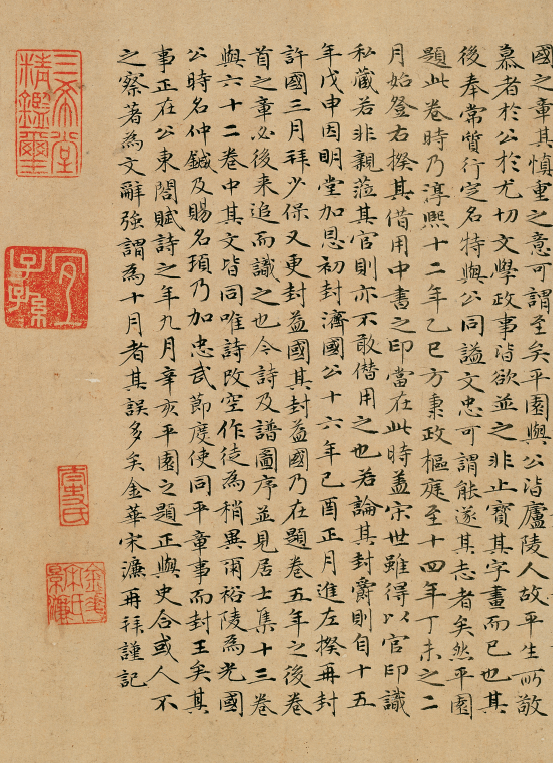 國之章其慎重之意可謂至矣平園與公皆廬陵人故平生所敬
慕者於公於尤切文學政事皆欲並之非止寶其字畫而已也其
後奉常質行定名特與公同謚文忠可謂能遂其志者矣然平園
題此卷時乃淳熙十二年乙巳方秉政樞庭至十四年丁未之二
月始登右揆其借用中書之印當在此時蓋宗世雖得以官印識
私藏若非親蒞其官則亦不敢僭用之也若論其封爵則自十五
年戊申因明堂加恩初封濟國公十六年己酉正月進左揆再封
許國三月拜少保又更封益國其封益國乃在題卷五年之後卷
首之章必後來追而識之也今詩及譜圖序並見居士集十三卷
與六十二卷中其文皆同唯詩改空作徒為稍異爾裕陵為光國
公時名仲鍼及賜名頊乃加忠武節度使同平章事而封王矣其
事正在公東閤賦詩之年九月辛亥平園之題正與史合或人不
之察著為文辭強謂為十月者其誤多矣金華宋濂再拜謹記
三希堂精鑑璽
宜子孫
金華宋氏景濂